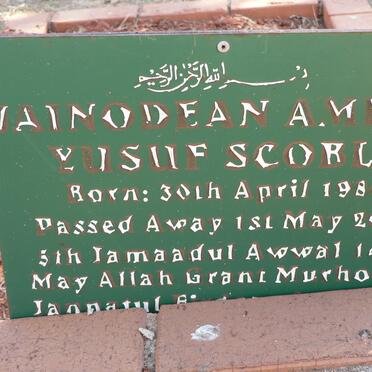 بسم الله الرحمن الرحيم
YUSUF SCOBL
Born: 30th April 198
Passed Away 1st May 2
5th Jamaadul Awwal 1
May Allah Grant Murho
Jannatul